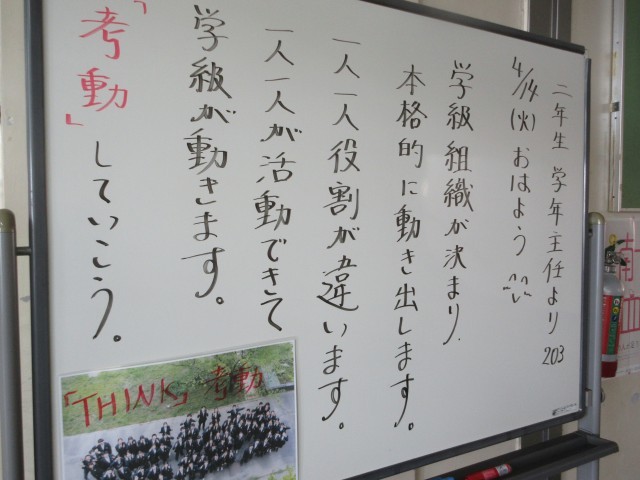 二年生 学年主任より 203
4/14(火) おはよう ^^
学級組織が決まり、
本格的に動き出します。
一人一人役割が違います。
一人一人が活動できて
学級が動きます。
「考動」していこう。
「THINK」考動